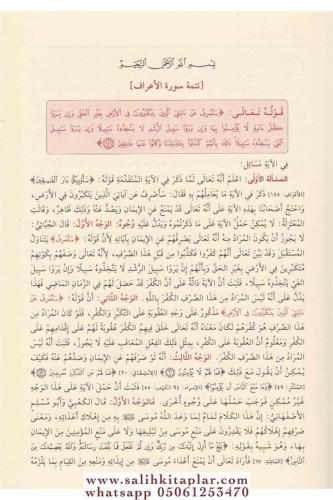 بِسْمِ اللَّهِ الرَّحْمَنِ الرَّحِيمِ
[تتمة سورة الأعراف]
قَوْلُهُ تَعَالَى: ﴿سَأَصْرِفُ عَنْ ءَايَٰتِيَ ٱلَّذِينَ يَتَكَبَّرُونَ فِي ٱلْأَرْضِ بِغَيْرِ ٱلْحَقِّ وَإِن يَرَوْا۟
كُلَّ ءَايَةٍ لَّا يُؤْمِنُوا۟ بِهَا وَإِن يَرَوْا۟ سَبِيلَ ٱلرُّشْدِ لَا يَتَّخِذُوهُ سَبِيلًا وَإِن يَرَوْا۟ سَبِيلَ
ٱلْغَيِّ يَتَّخِذُوهُ سَبِيلًا ذَٰلِكَ بِأَنَّهُمْ كَذَّبُوا۟ بِـَٔايَٰتِنَا وَكَانُوا۟ عَنْهَا غَٰفِلِينَ﴾
في الآية مسائل:
المسألة الأولى: اعلم أنه تعالى لما ذكر في الآية المتقدمة قوله: ﴿سَأُو۟رِيكُمْ دَارَ ٱلْفَٰسِقِينَ﴾
[الأعراف: ١٤٥] ذكر في الآية ما يعاملهم به فقال: سأصرف عن آياتي الذين يتكبرون في الأرض،
واحتج أصحابنا بهذه الآية على أنه تعالى قد يمنع عن الإيمان ويصد عنه وذلك ظاهر، وقالت
المعتزلة: لا يمكن حمل الآية على ما ذكرتموه ويدل عليه وجوه: الوجه الأول: قال الجبائي:
لا يجوز أن يكون المراد منه أنه تعالى يصرفهم عن الإيمان بآياته لأن قوله: ﴿سَأَصْرِفُ﴾ يتناول
المستقبل وقد بين تعالى أنهم كفروا فكذبوا من قبل هذا الصرف، لأنه تعالى وصفهم بكونهم
متكبرين في الأرض بغير الحق وبأنهم إن يروا سبيل الرشد لا يتخذوه سبيلا وإن يروا سبيل
الغي يتخذوه سبيلا، فثبت أن الآية دالة على أن الكفر قد حصل لهم في الزمان الماضي فهذا
يدل على أنه ليس المراد من هذا الصرف الكفر بالله. الوجه الثاني: أن قوله: ﴿سَأَصْرِفُ عَنْ
ءَايَٰتِيَ ٱلَّذِينَ يَتَكَبَّرُونَ فِي ٱلْأَرْضِ﴾ مذكور على وجه العقوبة على التكبر والكفر، فلو كان المراد من
هذا الصرف هو كفرهم لكان معناه أنه تعالى خلق فيهم الكفر عقوبة لهم على إقدامهم على
الكفر ومعلوم أن العقوبة على الكفر، بمثل ذلك الفعل المعاقب عليه لا يجوز، فثبت أنه ليس
المراد من هذا الصرف الكفر. الوجه الثالث: أنه لو صرفهم عن الإيمان وصدهم عنه فكيف
يمكن أن يقول مع ذلك ﴿فَمَا لَهُمْ لَا يُؤْمِنُونَ﴾ [الانشقاق: ٢٠] ﴿فَمَا لَهُمْ عَنِ ٱلتَّذْكِرَةِ مُعْرِضِينَ﴾
[المدثر: ٤٩] ﴿وَمَا مَنَعَ ٱلنَّاسَ أَن يُؤْمِنُوٓا۟﴾ فثبت أن حمل الآية على هذا الوجه
غير ممكن فوجب حملها على وجوه أخرى. فالوجه الأول: قال الكعبي وأبو مسلم
الأصفهاني: إن هذا الكلام تمام لما وعد الله موسى به من إهلاك أعدائه، ومعنى
صرفهم إهلاكهم فلا يقدرون على منع موسى من تبليغها ولا على منع المؤمنين من الإيمان
بها، وهو شبيه بقوله: ﴿بَلِّغْ مَآ أُنزِلَ إِلَيْكَ مِن رَّبِّكَ وَإِن لَّمْ تَفْعَلْ فَمَا بَلَّغْتَ رِسَالَتَهُۥ وَٱللَّهُ يَعْصِمُكَ مِنَ
ٱلنَّاسِ﴾ [المائدة: ٦٧] فأراد تعالى أن يمنع أعداء موسى من إيذائه ومنعه من القيام بما يلزمه
www.salihkitaplar.com
whatsapp 05061253470